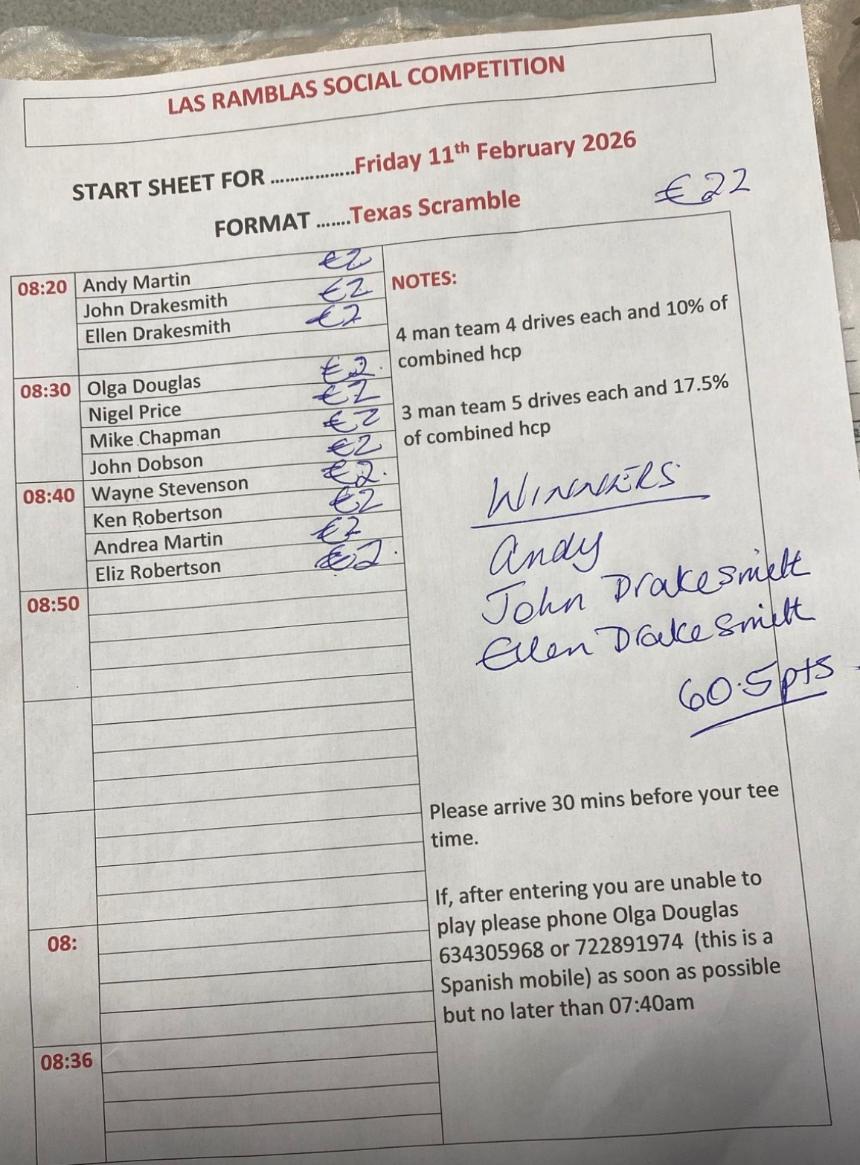 LAS RAMBLAS SOCIAL COMPETITION
START SHEET FOR .................Friday 11th February 2026
FORMAT .......Texas Scramble
€22
08:20 Andy Martin €2
John Drakesmith €2
Ellen Drakesmith €2
08:30 Olga Douglas €2.
Nigel Price €2
Mike Chapman €2
John Dobson €2
08:40 Wayne Stevenson €2.
Ken Robertson €2
Andrea Martin €2
Eliz Robertson €2.
08:50
08:
08:36
NOTES:
4 man team 4 drives each and 10% of
combined hcp
3 man team 5 drives each and 17.5%
of combined hcp
WINNERS
Andy
John Drakesmith
Ellen Drakesmith
60.5pts
Please arrive 30 mins before your tee
time.
If, after entering you are unable to
play please phone Olga Douglas
634305968 or 722891974 (this is a
Spanish mobile) as soon as possible
but no later than 07:40am